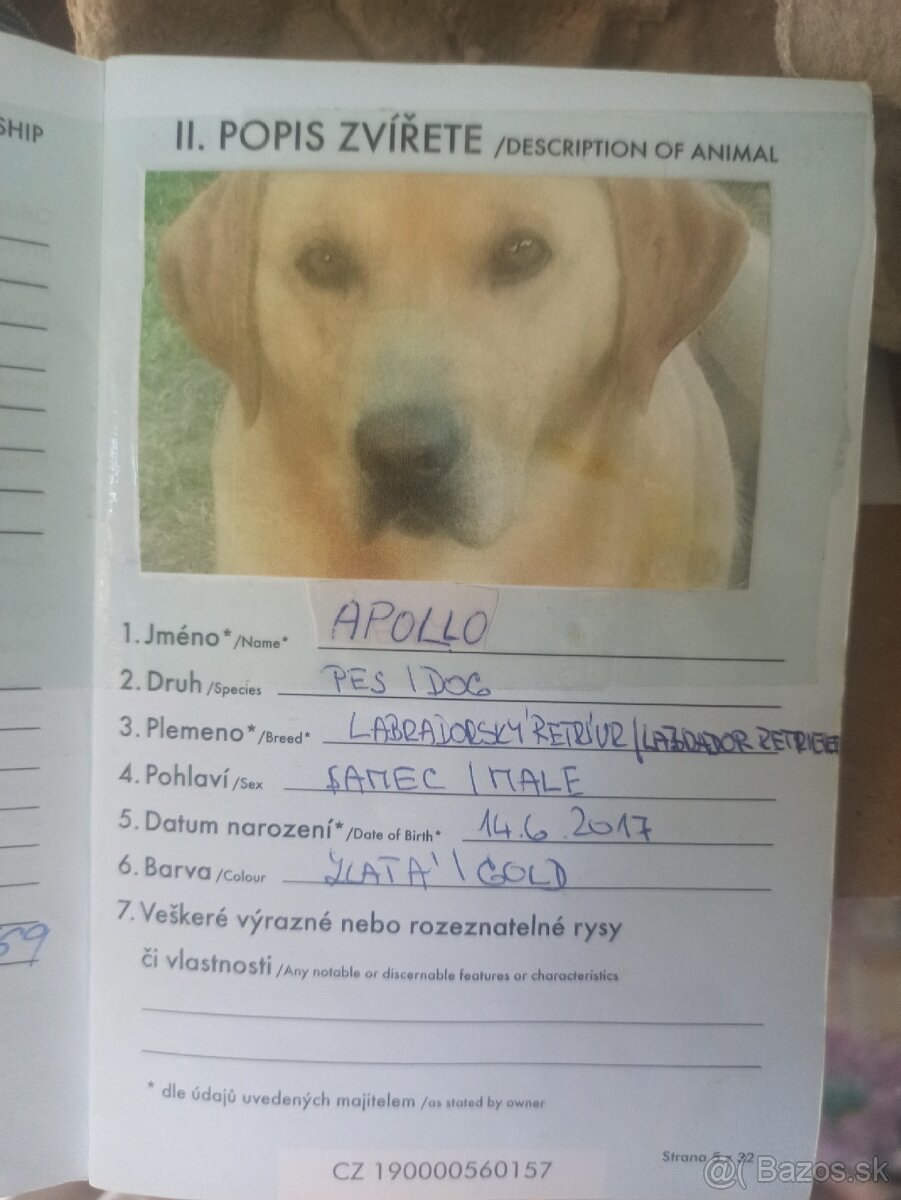 SHIP
II. POPIS ZVÍŘETE /DESCRIPTION OF ANIMAL
1. Jméno* /Name* APOLLO
2. Druh /Species PES / DOG
3. Plemeno* /Breed* LABRADORSKÝ RETRÍVR / LABRADOR RETRIEVER
4. Pohlaví /Sex SAMEC / MALE
5. Datum narození* /Date of Birth* 14.6.2017
6. Barva /Colour ZLATÁ / GOLD
7. Veškeré výrazné nebo rozeznatelné rysy
či vlastnosti /Any notable or discernable features or characteristics
59
* dle údajů uvedených majitelem /as stated by owner
Strana 5 z 32
CZ 190000560157
@( Bazos.sk